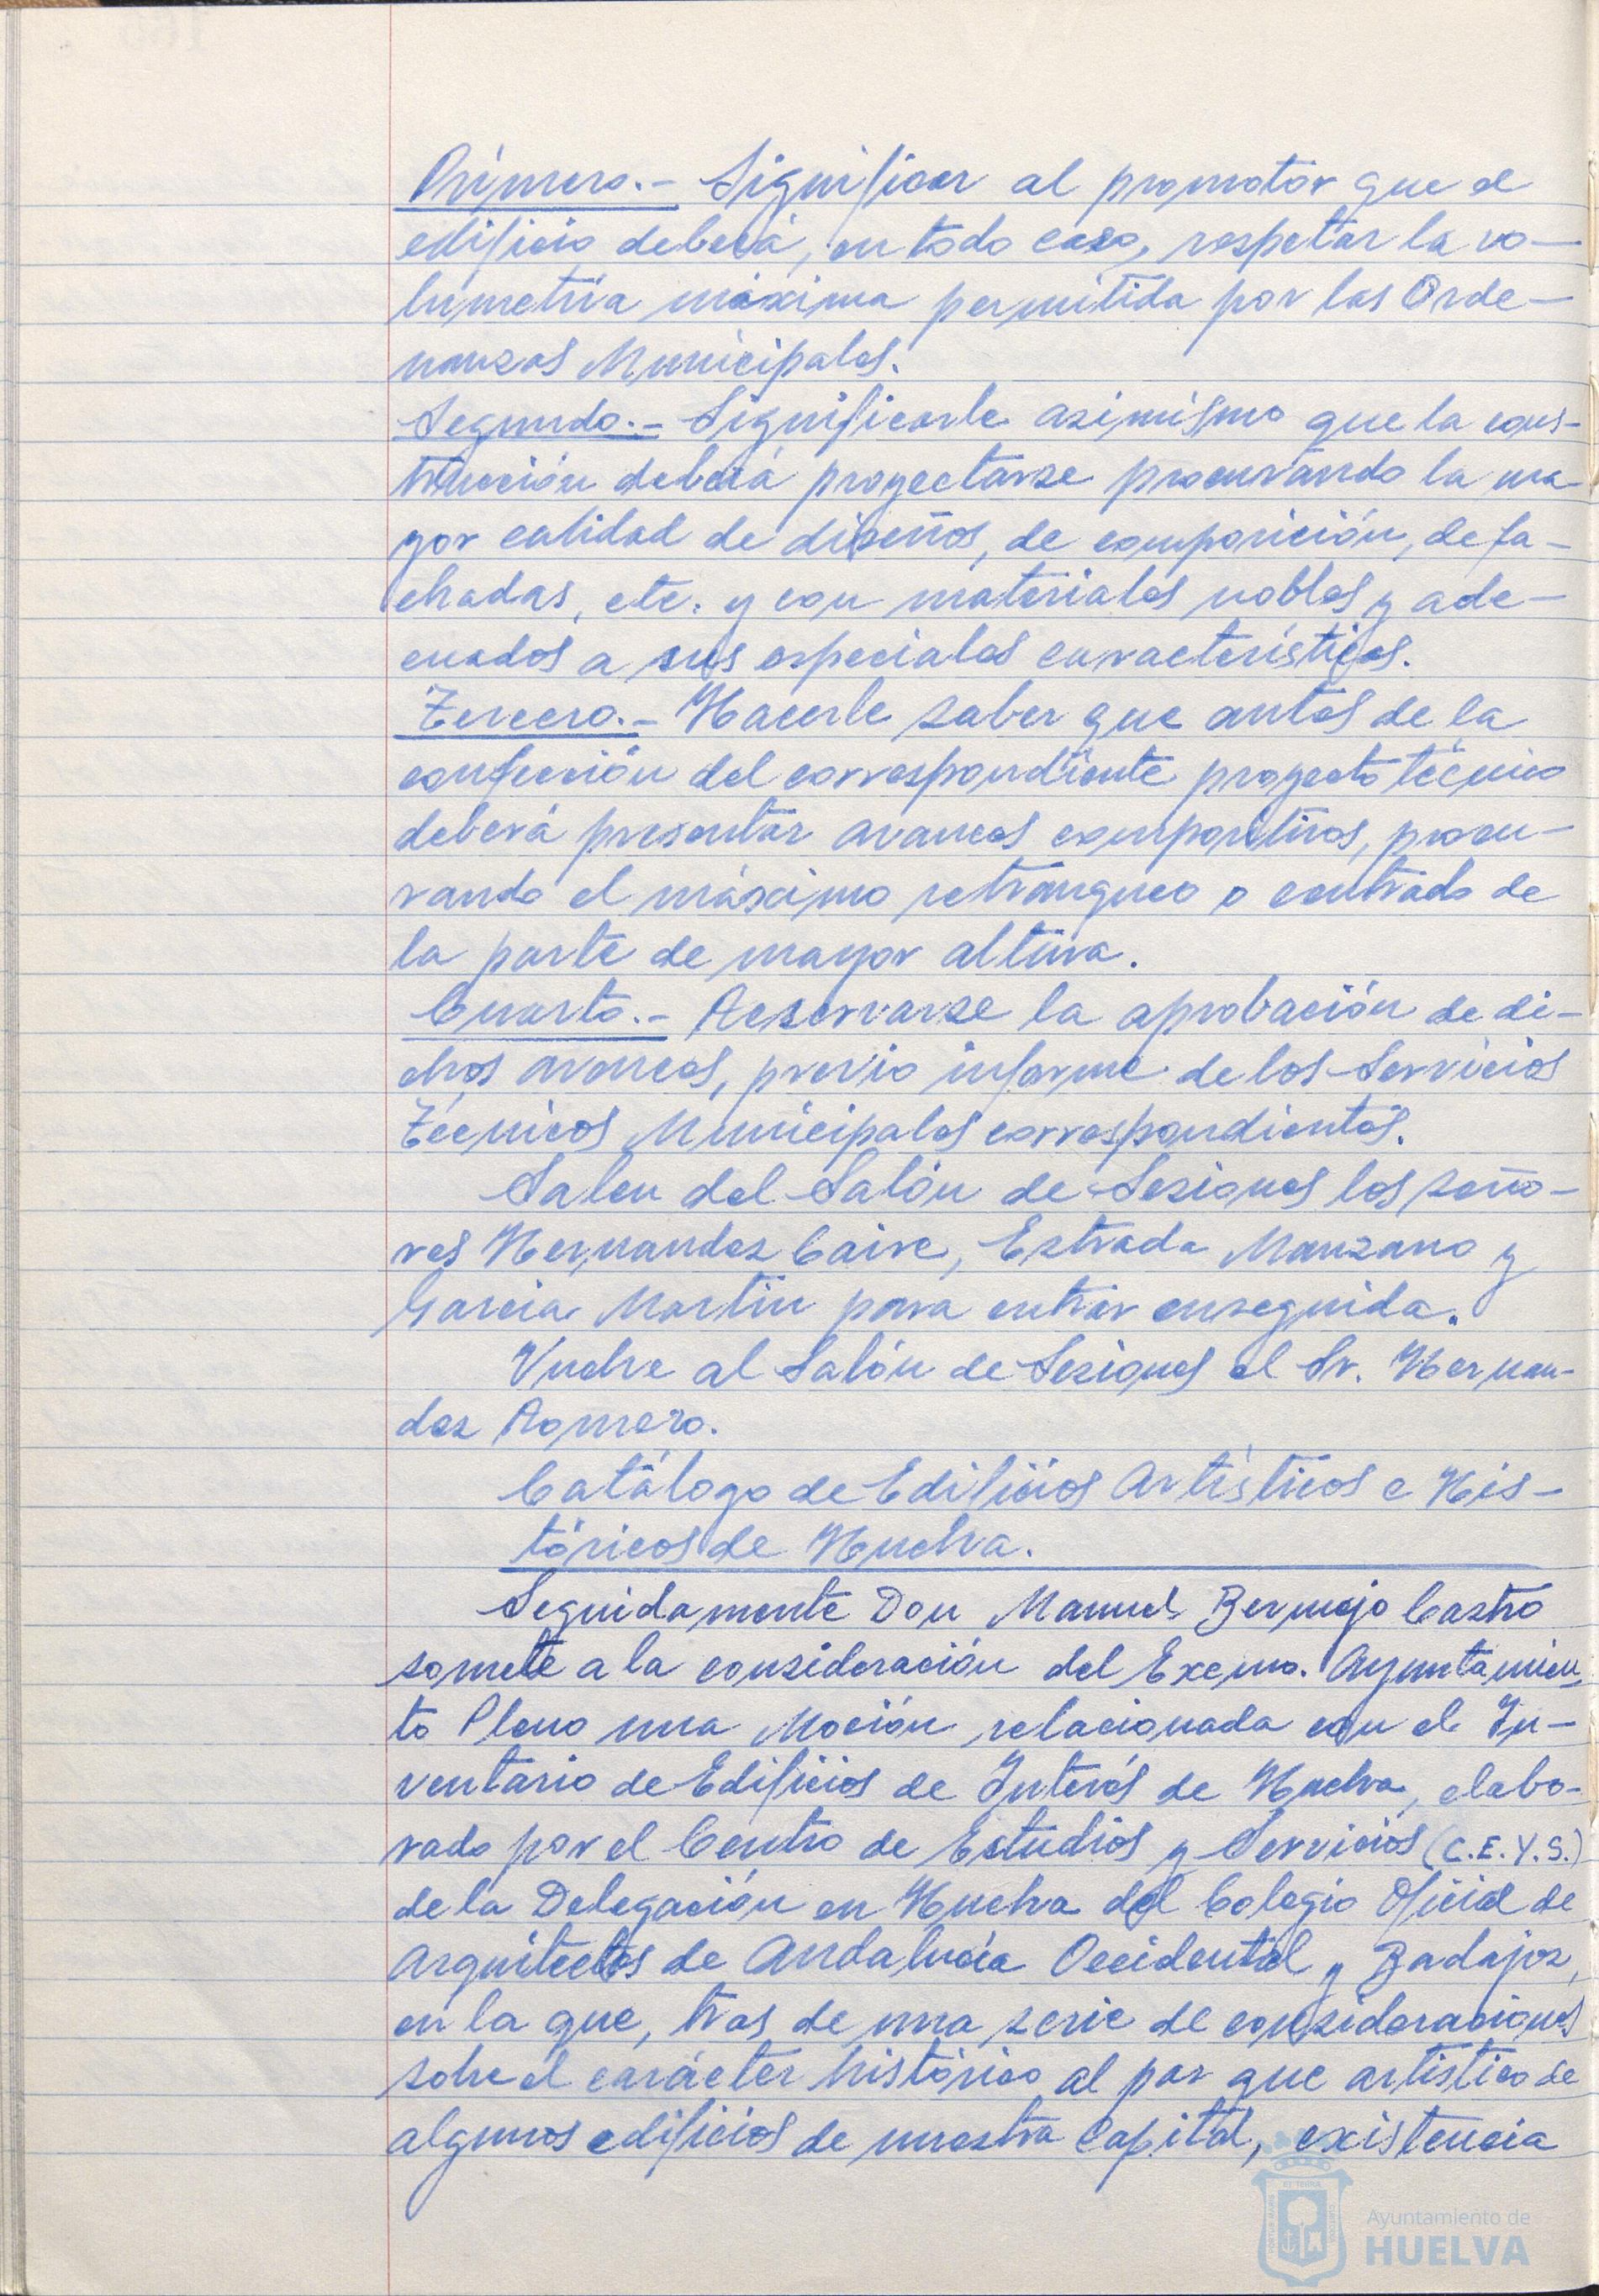 Primero.- Significar al promotor que el
edificio deberá, en todo caso, respetar la vo-
lumetria máxima permitida por las Orde-
nanzas Municipales.
Segundo.- Significarle asimismo que la cons-
trucción deberá proyectarse procurando la ma-
yor calidad de diseños, de composición, de fa-
chadas, etc. y con materiales nobles y ade-
cuados a sus especiales caracteristicas.
Tercero.- Hacerle saber que antes de la
confección del correspondiente proyecto técnico
deberá presentar avances compositivos, procu-
rando el máximo retranqueo o centrado de
la parte de mayor altura.
Cuarto.- Reservarse la aprobación de di-
chos avances, previo informe de los Servicios
Técnicos Municipales correspondientes.
Salen del Salón de Sesiones los seño-
res Hernandez Caire, Estrada Manzano y
Garcia Martin para entrar enseguida.
Vuelve al Salón de Sesiones el Sr. Hernan-
dez Romero.
Catálogo de Edificios Artísticos e His-
tóricos de Huelva.
Seguidamente Don Manuel Bermejo Castro
somete a la consideración del Excmo. Ayuntamien-
to Pleno una Moción relacionada con el In-
ventario de Edificios de Interés de Huelva, elabo-
rado por el Centro de Estudios y Servicios (C.E.Y.S.)
de la Delegación en Huelva del Colegio Oficial de
Arquitectos de Andalucia Occidental y Badajoz,
en la que, tras de una serie de consideraciones
sobre el carácter histórico al par que artistico de
algunos edificios de nuestra Capital, existencia
Ayuntamiento de
HUELVA